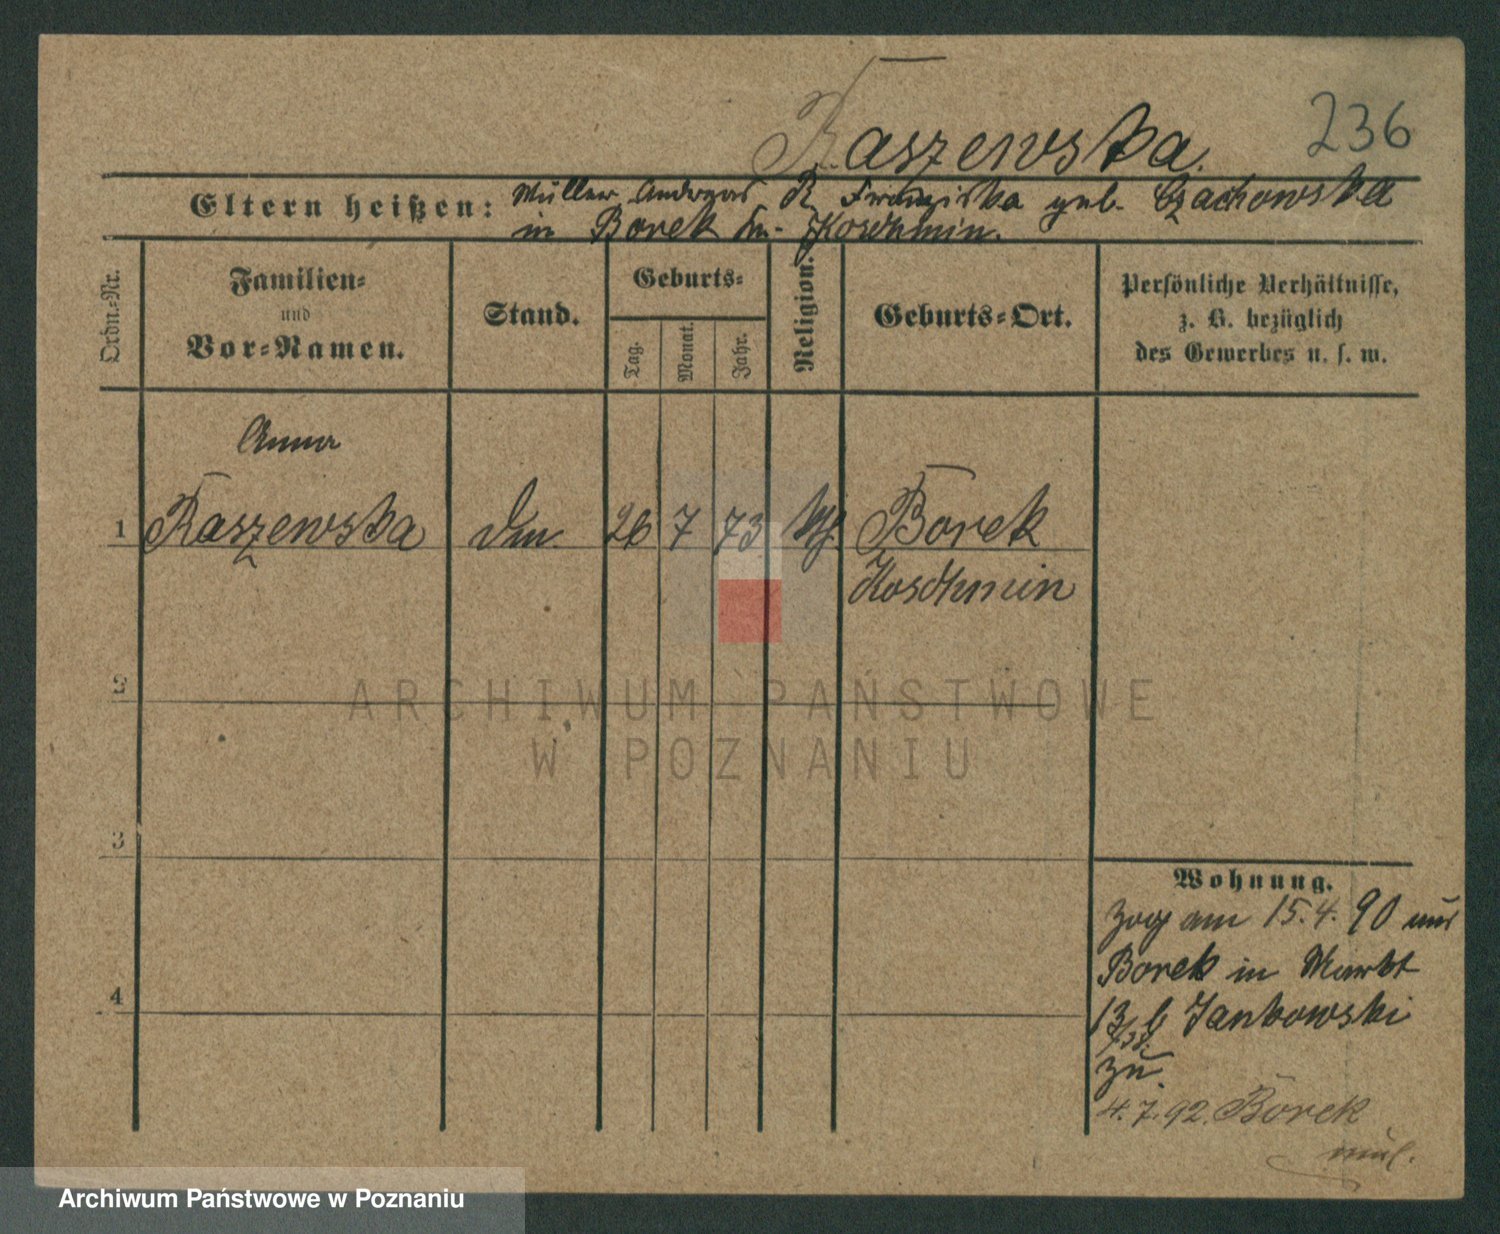 236
Raszewska.
Eltern heißen: Müller Andreas R. Franziska geb. Czachowska
in Borek Kr. Koschmin.
Ordn.-Nr.
Familien-
und
Vor-Namen.
Stand.
Geburts-
Tag.
Monat.
Jahr.
Religion.
Geburts-Ort.
Persönliche Verhältnisse,
z. B. bezüglich
des Gewerbes u. s. w.
Anna
1 Raszewska 26 7 73 Borek
Koschmin
2
3
4
Wohnung.
Zog am 15.4.90 aus
Borek in Markt
13 b Jankowski
zu.
4.7.92. Borek
ARCHIWUM PAŃSTWOWE
W POZNANIU
Archiwum Państwowe w Poznaniu